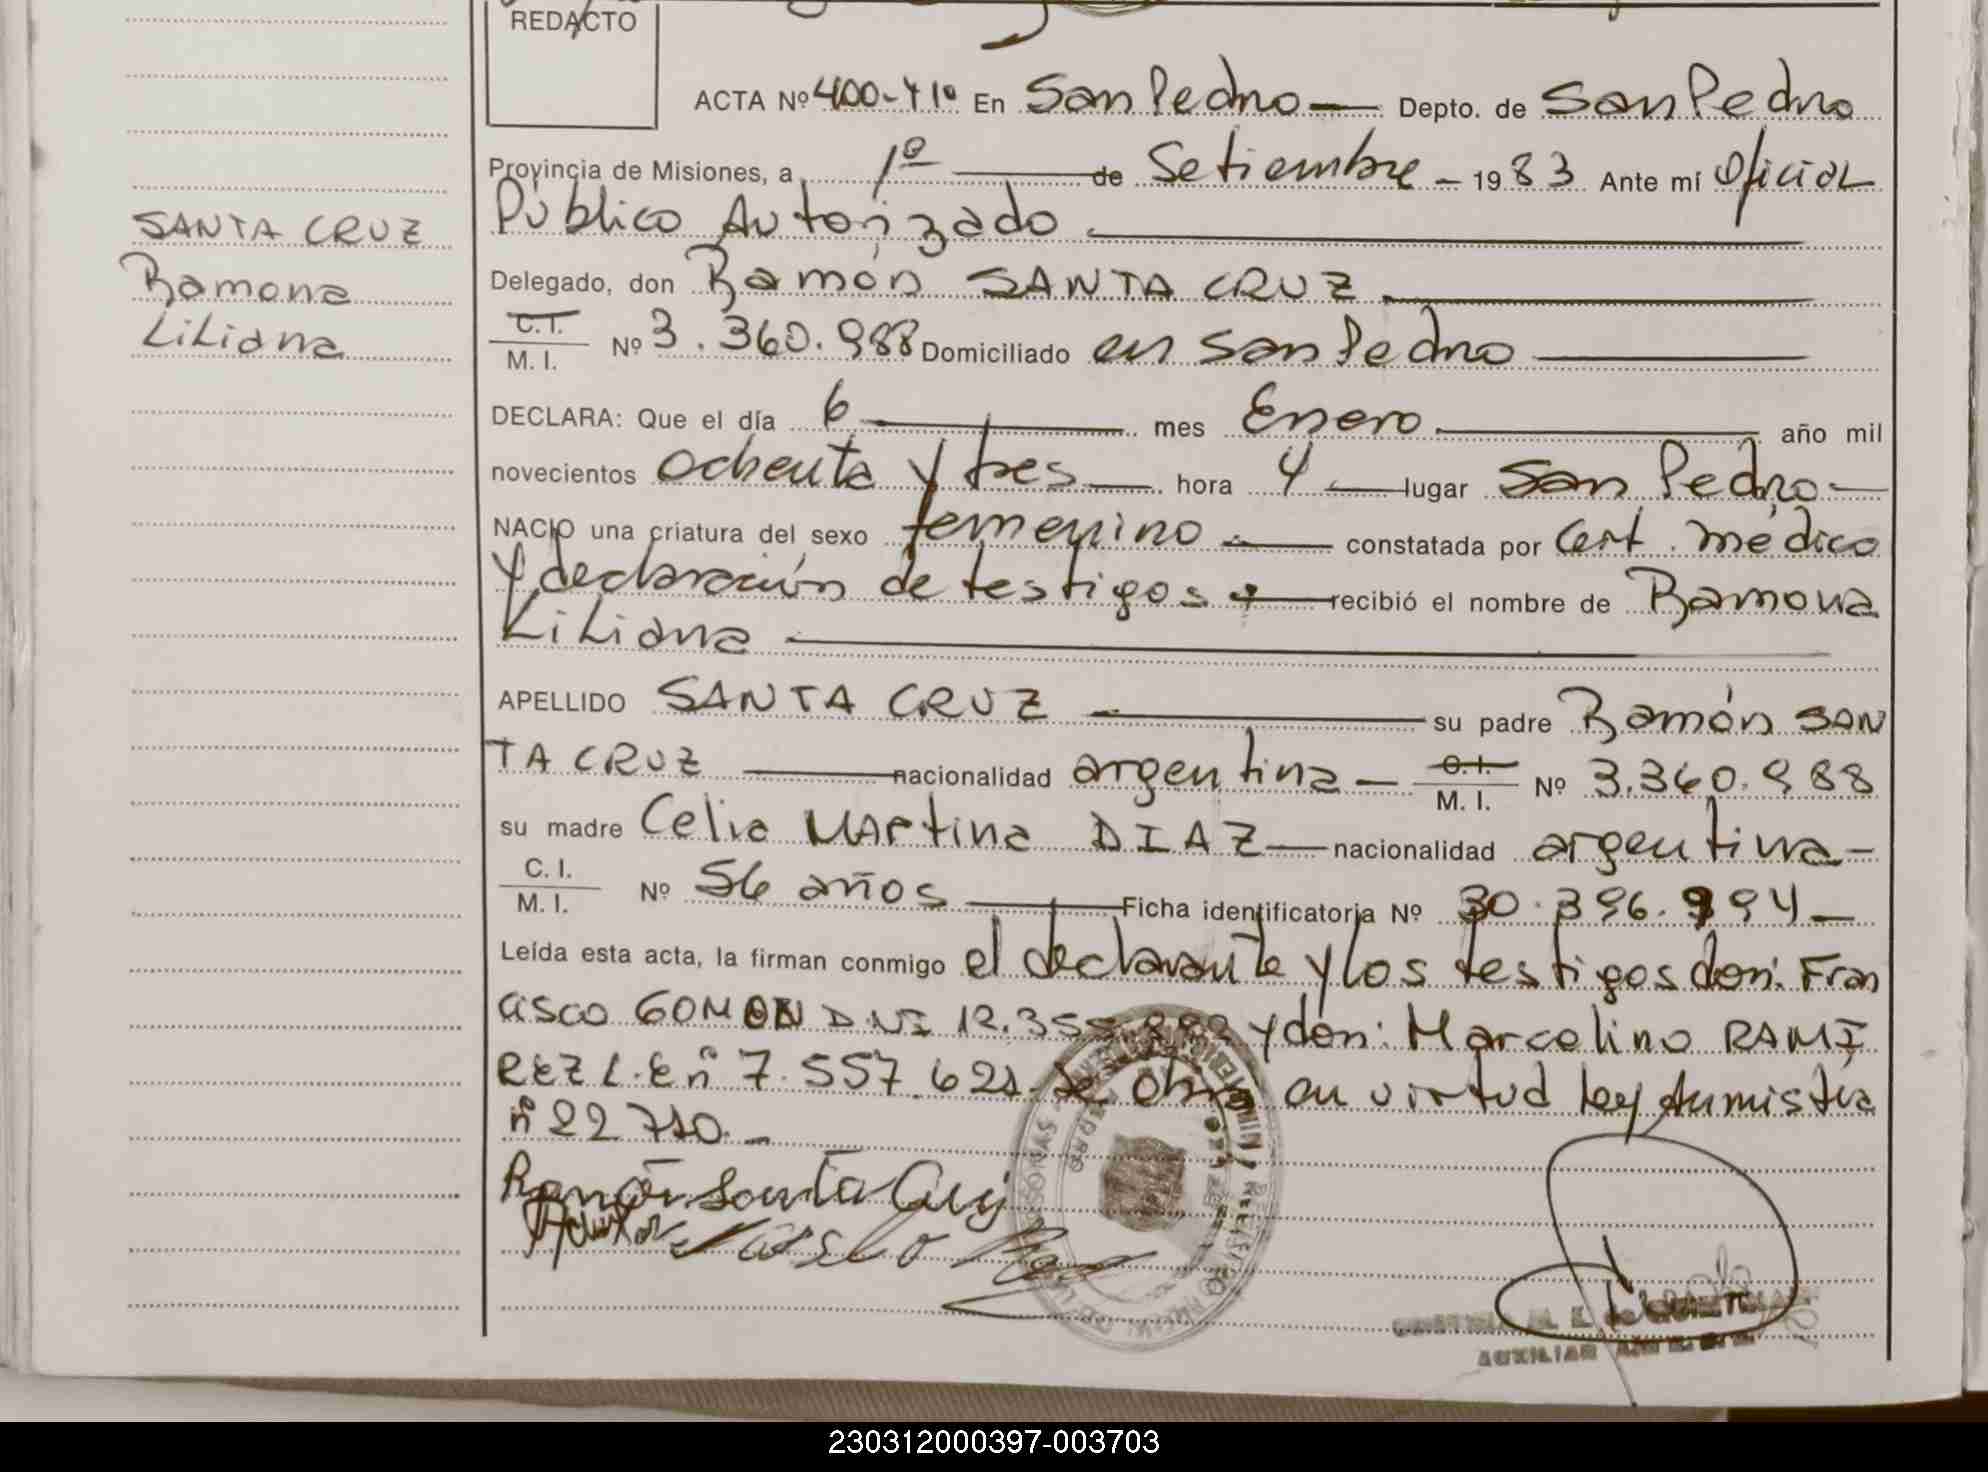 REDACTO
ACTA Nº 400-T1º En San Pedro Depto. de San Pedro
Provincia de Misiones, a 1º de Setiembre - 1983 Ante mí Oficial
Público Autorizado
SANTA CRUZ
Ramona
Liliana
Delegado, don Ramón SANTA CRUZ
C.I.
M. I. Nº 3.360.988 Domiciliado en San Pedro
DECLARA: Que el día 6 mes Enero año mil
novecientos ochenta y tres hora 4 lugar San Pedro
NACIO una criatura del sexo femenino constatada por Cert. médico
y declaración de testigos recibió el nombre de Ramona
Liliana
APELLIDO SANTA CRUZ su padre Ramón SAN
TA CRUZ nacionalidad argentina C.I.
M. I. Nº 3.360.988
su madre Celia MARtina DIAZ nacionalidad argentina
C. I.
M. I. Nº 56 años Ficha identificatoria Nº 30.396.994
Leída esta acta, la firman conmigo el declarante y los testigos don: Fran
cisco DNI y don: Marcelino RAMI
REZ L.E nº 7.557.621 - Se obra en virtud ley Amnistia
nº 22710.-
Ramón Santa Cruz
AUXILIAR
230312000397-003703